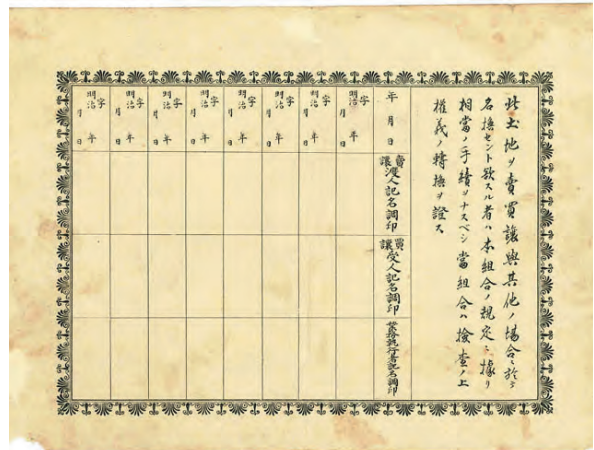 此土地ヲ賣買讓與其他ノ場合ニ於テ
名換セント欲スル者ハ本組合ノ規定ニ據リ
相當ノ手續ヲナスベシ當組合ハ檢査ノ上
權義ノ轉換ヲ證ス
年月日
賣讓渡人記名調印
買讓受人記名調印
業務執行者記名調印
字
明治 年
月 日
字
明治 年
月 日
字
明治 年
月 日
字
明治 年
月 日
字
明治 年
月 日
字
明治 年
月 日
字
明治 年
月 日
字
明治 年
月 日